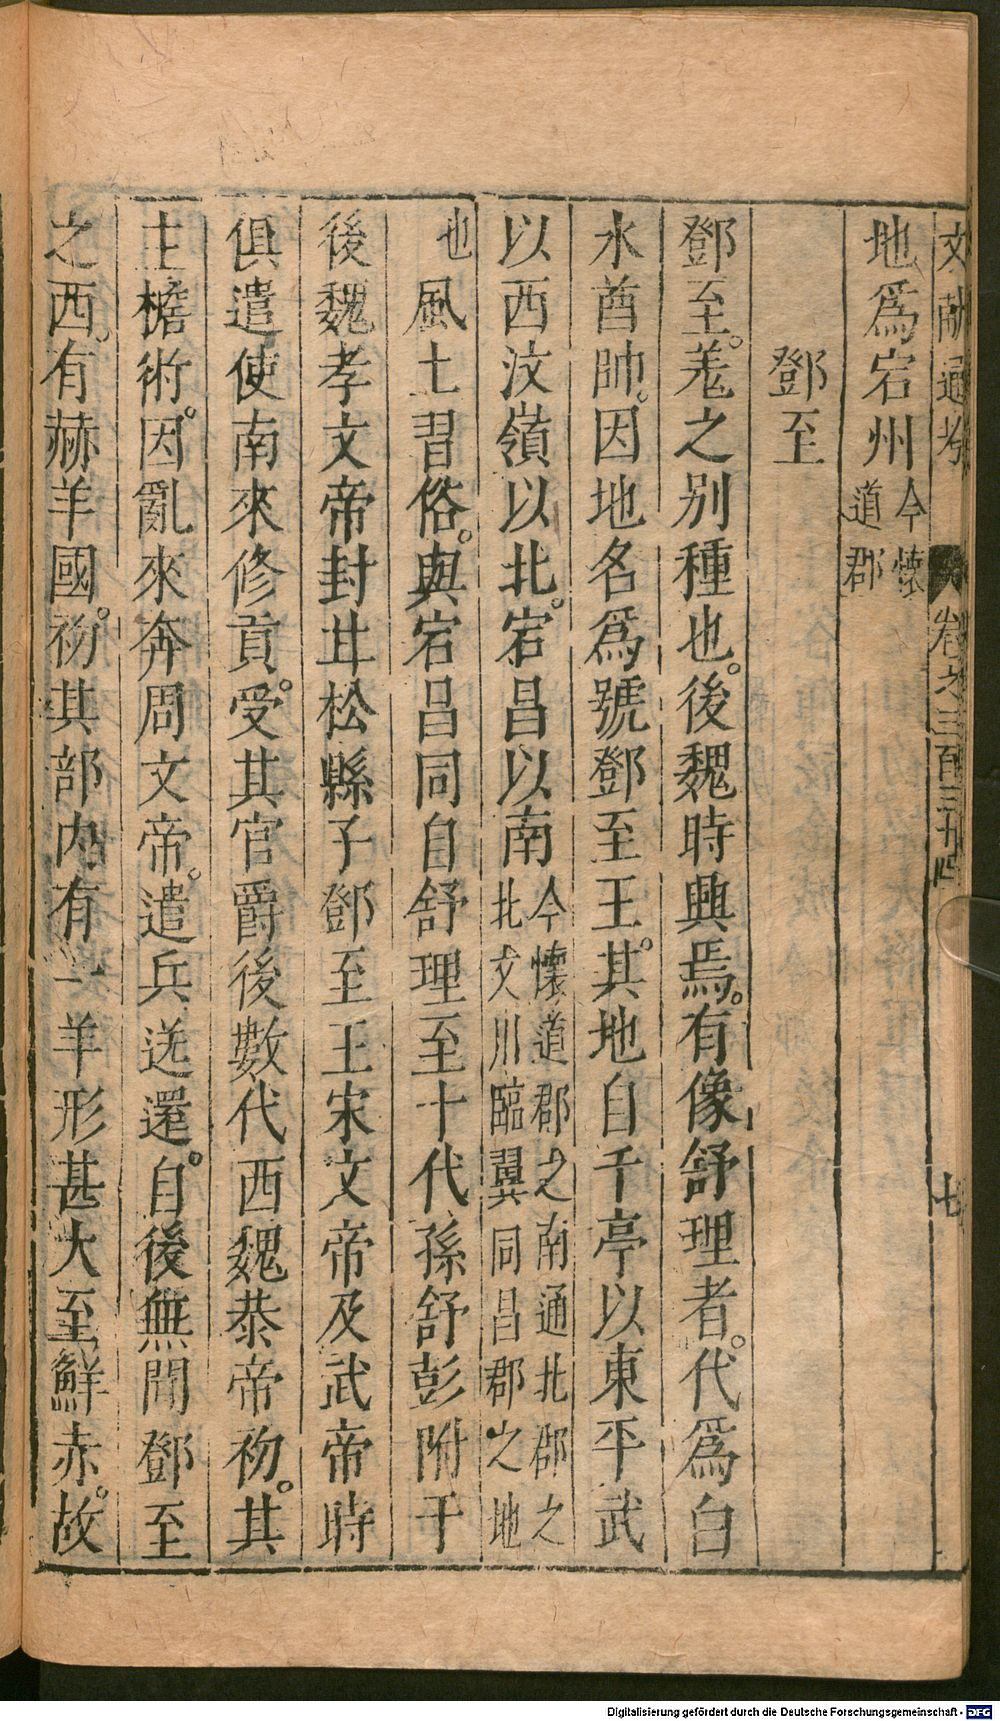 文献通考 卷之三百三十四 七
地爲宕州今懷道郡
鄧至
鄧至。羗之别種也。後魏時興焉。有像舒理者。代爲白
水酋帥。因地名爲號鄧至王。其地自千亭以東平武
以西汶嶺以北。宕昌以南今懷道郡之南通北郡之北文川臨翼同昌郡之地
也風土習俗。與宕昌同自舒理至十代孫舒彭附于
後魏孝文帝封甘松縣子鄧至王宋文帝及武帝時
俱遣使南來修貢。受其官爵後數代西魏恭帝初。其
主檐術。因亂來奔周文帝。遣兵送還。自後無聞鄧至
之西。有赫羊國。初其部内有一羊形甚大至鮮赤。故
Digitalisierung gefördert durch die Deutsche Forschungsgemeinschaft - DFG